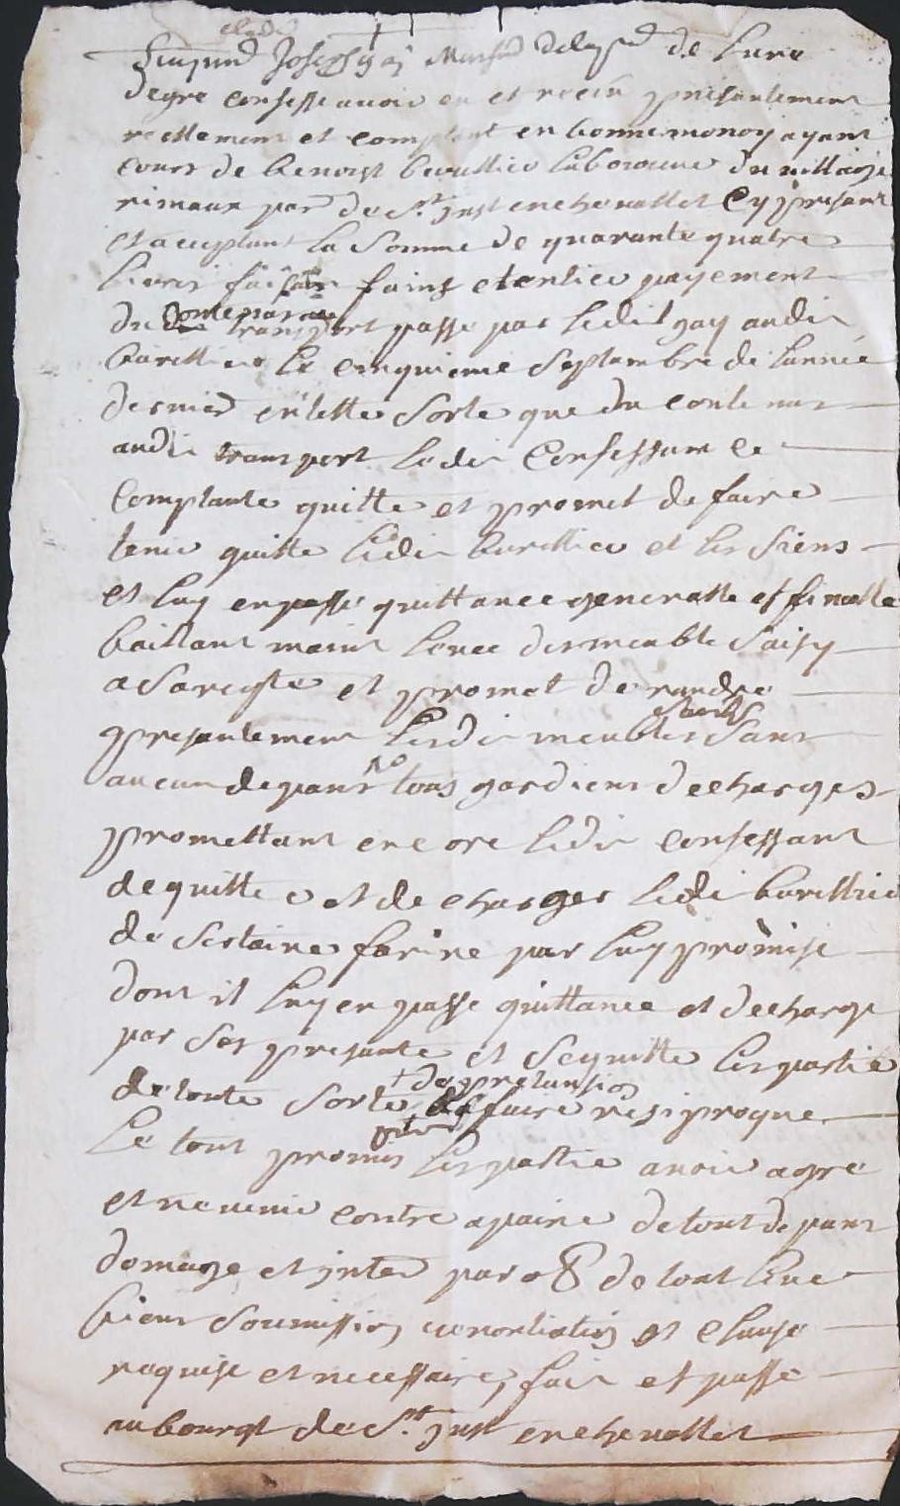 Joseph gay March de la p de Lure
degre confesse avoir eu et receu presentement
reellement et comptant en bonne monoy ayant
cours de benoist laboureur du village
rimaux par de St just en chevallet Cy present
et acceptant La Somme de quarante quatre
Livres faisant fains et entier payement
du Contenu au transport passé par ledit gay audit
burellier Le cinquieme Septembre de Lannée
derniere en telle Sorte que du contenus
audit transport Ledit Confessant Ce
Comptante quitte et promet de faire
tenir quitte Ledit burellier et les Siens
et Luy en passe quittance generalle et finalle
baillant main Levee des meuble Saisy
a Sareqte et promet de randre
presentement Lesdit meubles Saisis Sans
aucun depans tous gardiens decharges
promettant encore Ledit confessant
de quitte et de charger Ledit burellier
de Sertaine farine par Luy promise
dont il Luy en passe quittance et decharge
par Ses presante et Sequitte Les partie
de toute Sorte de pretansion daffaire resiproque
Le tout promis Les partie avoir agre
et ne venir contre a paine de tout depans
domage et inter par de tout Leur
biens Soumission et Clause
requise et necessaire, fait et passé
au bourgt de St just en chevallet